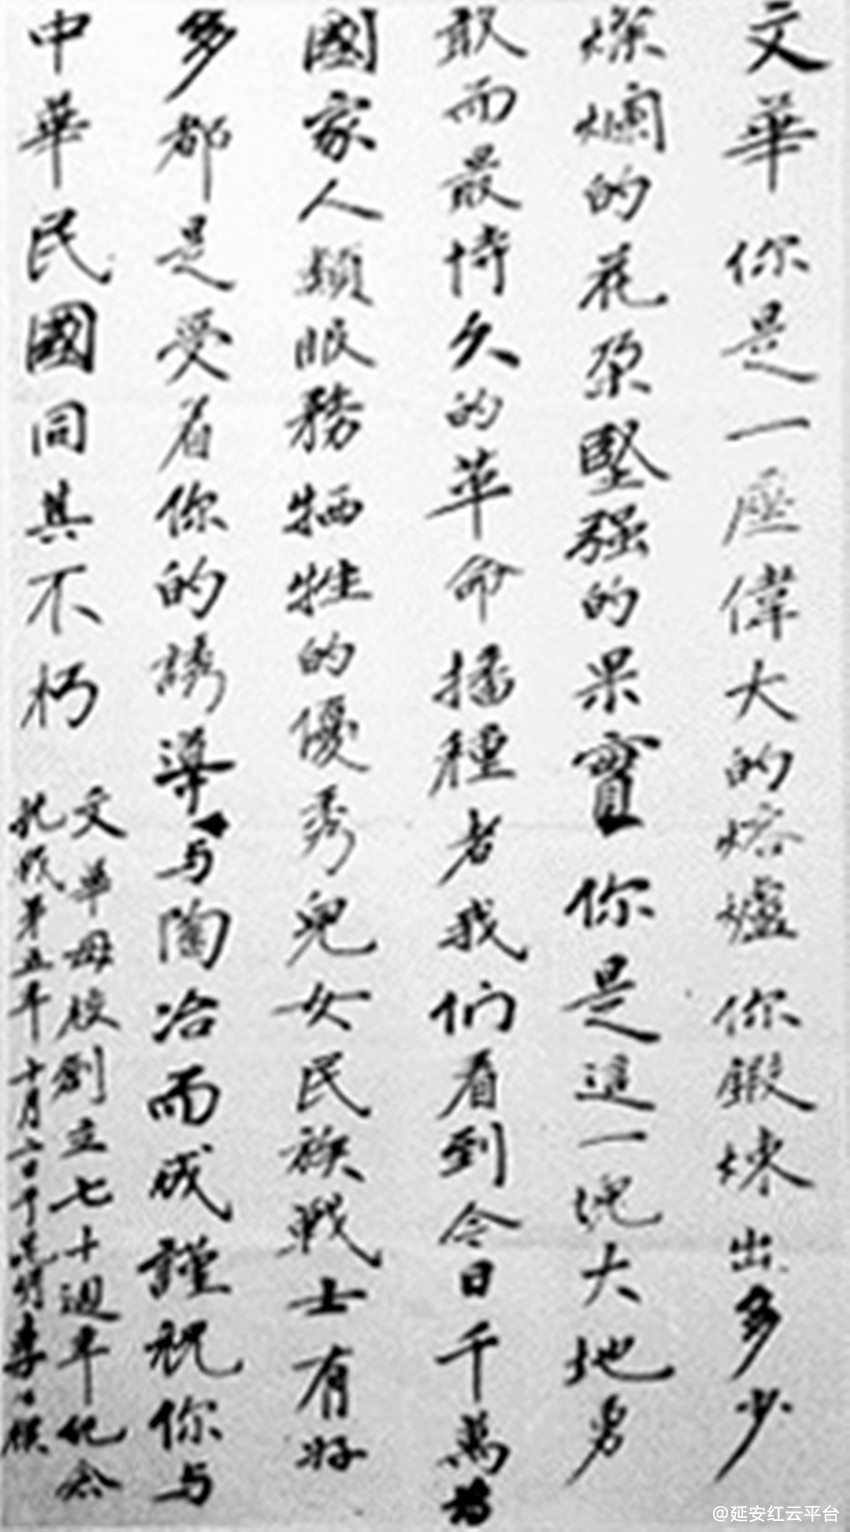 文華你是一座偉大的熔爐你鍛煉出多少
燦爛的花朶堅强的果實你是這一塊大地勇
敢而最恃久的革命播種者我們看到今日千萬為
國家人類服務牺牲的優秀兒女民族戰士有好
多都是受着你的誘導与陶冶而成謹祝你与
中華民國同其不朽
文華母校創立七十週年紀念
抗战第五年十月二日于昆明李公樸
@延安红云平台